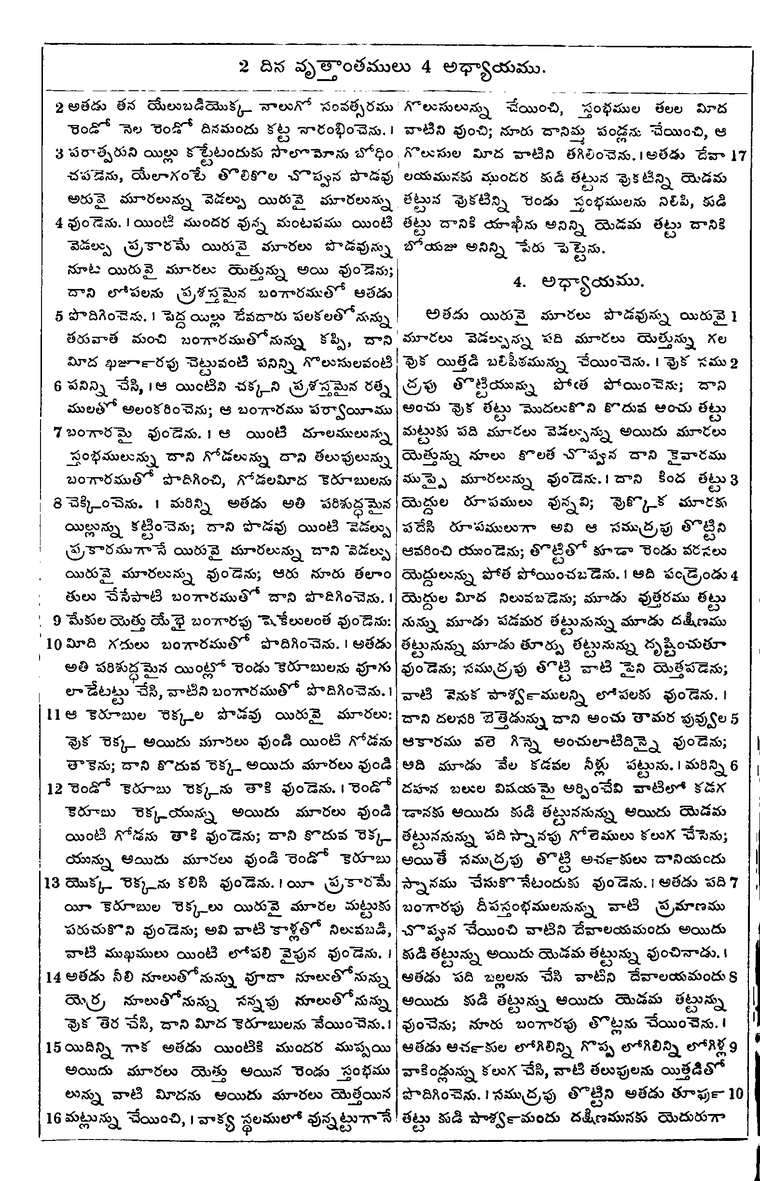 2 దిన వృత్తాంతములు 4 అధ్యాయము.
2 అతడు తన యేలుబడియొక్క నాలుగో సంవత్సరము
రెండో నెల రెండో దినమందు కట్ట నారంభించెను. ।
3 పరాత్పరుని యిల్లు కట్టేటందుకు సొలొమోను బోధిం
చపడెను, యేలాగంటే తొలికొల చొప్పున పొడవు
అరువై మూరలున్ను వెడల్పు యిరువై మూరలున్ను
4 వుండెను. । యింటి ముందర వున్న మంటపము యింటి
వెడల్పు ప్రకారమే యిరువై మూరలు పొడవున్ను
నూట యిరువై మూరలు యెత్తున్ను అయి వుండెను;
దాని లోపలను ప్రశస్తమైన బంగారముతో అతడు
5 పొదిగించెను. । పెద్ద యిల్లు దేవదారు పలకలతోనున్ను
తరువాత మంచి బంగారముతోనున్ను కప్పి, దాని
మీద ఖర్జూరపు చెట్టువంటి పనిన్ని గొలుసులవంటి
6 పనిన్ని చేసి, । ఆ యింటిని చక్కని ప్రశస్తమైన రత్న
ములతో అలంకరించెను; ఆ బంగారము పర్వాయీము
7 బంగారమై వుండెను. । ఆ యింటి దూలములున్ను
స్తంభములున్ను దాని గోడలున్ను దాని తలుపులున్ను
బంగారముతో పొదిగించి, గోడలమీద కెరూబులను
8 చెక్కించెను. । మరిన్ని అతడు అతి పరిశుద్ధమైన
యిల్లున్ను కట్టించెను; దాని పొడవు యింటి వెడల్పు
ప్రకారముగానే యిరువై మూరలున్ను దాని వెడల్పు
యిరువై మూరలున్ను వుండెను; ఆరు నూరు తలాం
తులు చేసేపాటి బంగారముతో దాని పొదిగించెను. ।
9 మేకుల యెత్తు యేభై బంగారపు షెకేలులంత వుండెను:
10 మీది గదులు బంగారముతో పొదిగించెను. । అతడు
అతి పరిశుద్ధమైన యింట్లో రెండు కెరూబులను వూగు
లాడేటట్టు చేసి, వాటిని బంగారముతో పొదిగించెను. ।
11 ఆ కెరూబుల రెక్కల పొడవు యిరువై మూరలు:
వుక రెక్క అయిదు మూరలు వుండి యింటి గోడను
తాకెను; దాని కొదువ రెక్క అయిదు మూరలు వుండి
12 రెండో కెరూబు రెక్కను తాకి వుండెను. । రెండో
కెరూబు రెక్కయున్ను అయిదు మూరలు వుండి
యింటి గోడను తాకి వుండెను; దాని కొదువ రెక్క
యున్ను అయిదు మూరలు వుండి రెండో కెరూబు
13 యొక్క రెక్కను కలిసి వుండెను. । యీ ప్రకారమే
యీ కెరూబుల రెక్కలు యిరువై మూరల మట్టుకు
పరుచుకొని వుండెను; అవి వాటి కాళ్లతో నిలువబడి,
వాటి ముఖములు యింటి లోపలి వైపున వుండెను. ।
14 అతడు నీలి నూలుతోనున్ను వూదా నూలుతోనున్ను
యెర్ర నూలుతోనున్ను సన్నపు నూలుతోనున్ను
వుక తెర చేసి, దాని మీద కెరూబులను వేయించెను. ।
15 యిదిన్ని గాక అతడు యింటికి ముందర ముప్పయి
అయిదు మూరలు యెత్తు అయిన రెండు స్తంభము
లున్ను వాటి మీదను అయిదు మూరలు యెత్తయిన
16 మట్లున్ను చేయించి, । వాక్య స్థలములో వున్నట్టుగానే
గొలుసులున్ను చేయించి, స్తంభముల తలల మీద
వాటిని వుంచి; నూరు దానిమ్మ పండ్లను చేయించి, ఆ
గొలుసుల మీద వాటిని తగిలించెను. । అతడు దేవా 17
లయమునకు ముందర కుడి తట్టున వుకటిన్ని యెడమ
తట్టున వుకటిన్ని రెండు స్తంభములను నిలిపి, కుడి
తట్టు దానికి యాఖీను అనిన్ని యెడమ తట్టు దానికి
బోయజు అనిన్ని పేరు పెట్టెను.
4. అధ్యాయము.
అతడు యిరువై మూరలు పొడవున్ను యిరువై 1
మూరలు వెడల్పున్ను పది మూరలు యెత్తున్ను గల
వుక యిత్తడి బలిపీఠమున్ను చేయించెను. । వుక సము 2
ద్రపు తొట్టియున్ను పోత పోయించెను; దాని
అంచు వుక తట్టు మొదలుకొని కొదువ అంచు తట్టు
మట్టుకు పది మూరలు వెడల్పున్ను అయిదు మూరలు
యెత్తున్ను నూలు కొలత చొప్పున దాని కైవారము
ముప్పై మూరలున్ను వుండెను. । దాని కింద తట్టు 3
యెద్దుల రూపములు వున్నవి; వుక్కొక మూరకు
పదేసి రూపములుగా అవి ఆ సముద్రపు తొట్టిని
ఆవరించి యుండెను; తొట్టితో కూడా రెండు వరసలు
యెద్దులున్ను పోత పోయించబడెను. । అది పండ్రెండు 4
యెద్దుల మీద నిలువబడెను; మూడు వుత్తరము తట్టు
నున్ను మూడు పడమర తట్టునున్ను మూడు దక్షిణము
తట్టునున్ను మూడు తూర్పు తట్టునున్ను దృష్టించుతూ
వుండెను; సముద్రపు తొట్టి వాటి పైని యెత్తపడెను;
వాటి వెనుక పార్శ్వములన్ని లోపలకు వుండెను. ।
దాని దలసరి బెత్తెడున్ను దాని అంచు తామర పువ్వుల 5
ఆకారము వలె గిన్నె అంచులాటిదిన్నై వుండెను;
అది మూడు వేల కడవల నీళ్లు పట్టును. । మరిన్ని 6
దహన బలుల విషయమై అర్పించేవి వాటిలో కడగ
డానకు అయిదు కుడి తట్టుననున్ను అయిదు యెడమ
తట్టుననున్ను పది స్నానపు గోలెములు కలుగ చేసెను;
అయితే సముద్రపు తొట్టి అర్చకులు దానియందు
స్నానము చేసుకొనేటందుకు వుండెను. । అతడు పది 7
బంగారపు దీపస్తంభములనున్ను వాటి ప్రమాణము
చొప్పున చేయించి వాటిని దేవాలయమందు అయిదు
కుడి తట్టున్ను అయిదు యెడమ తట్టున్ను వుంచినాడు. ।
అతడు పది బల్లలను చేసి వాటిని దేవాలయమందు 8
అయిదు కుడి తట్టున్ను అయిదు యెడమ తట్టున్ను
వుంచెను; నూరు బంగారపు తొట్లను చేయించెను. ।
అతడు అర్చకుల లోగిలిన్ని గొప్ప లోగిలిన్ని లోగిళ్ల 9
వాకిండ్లున్ను కలుగ చేసి, వాటి తలుపులను యిత్తడితో
పొదిగించెను. । సముద్రపు తొట్టిని అతడు తూర్పు 10
తట్టు కుడి పార్శ్వమందు దక్షిణమునకు యెదురుగా